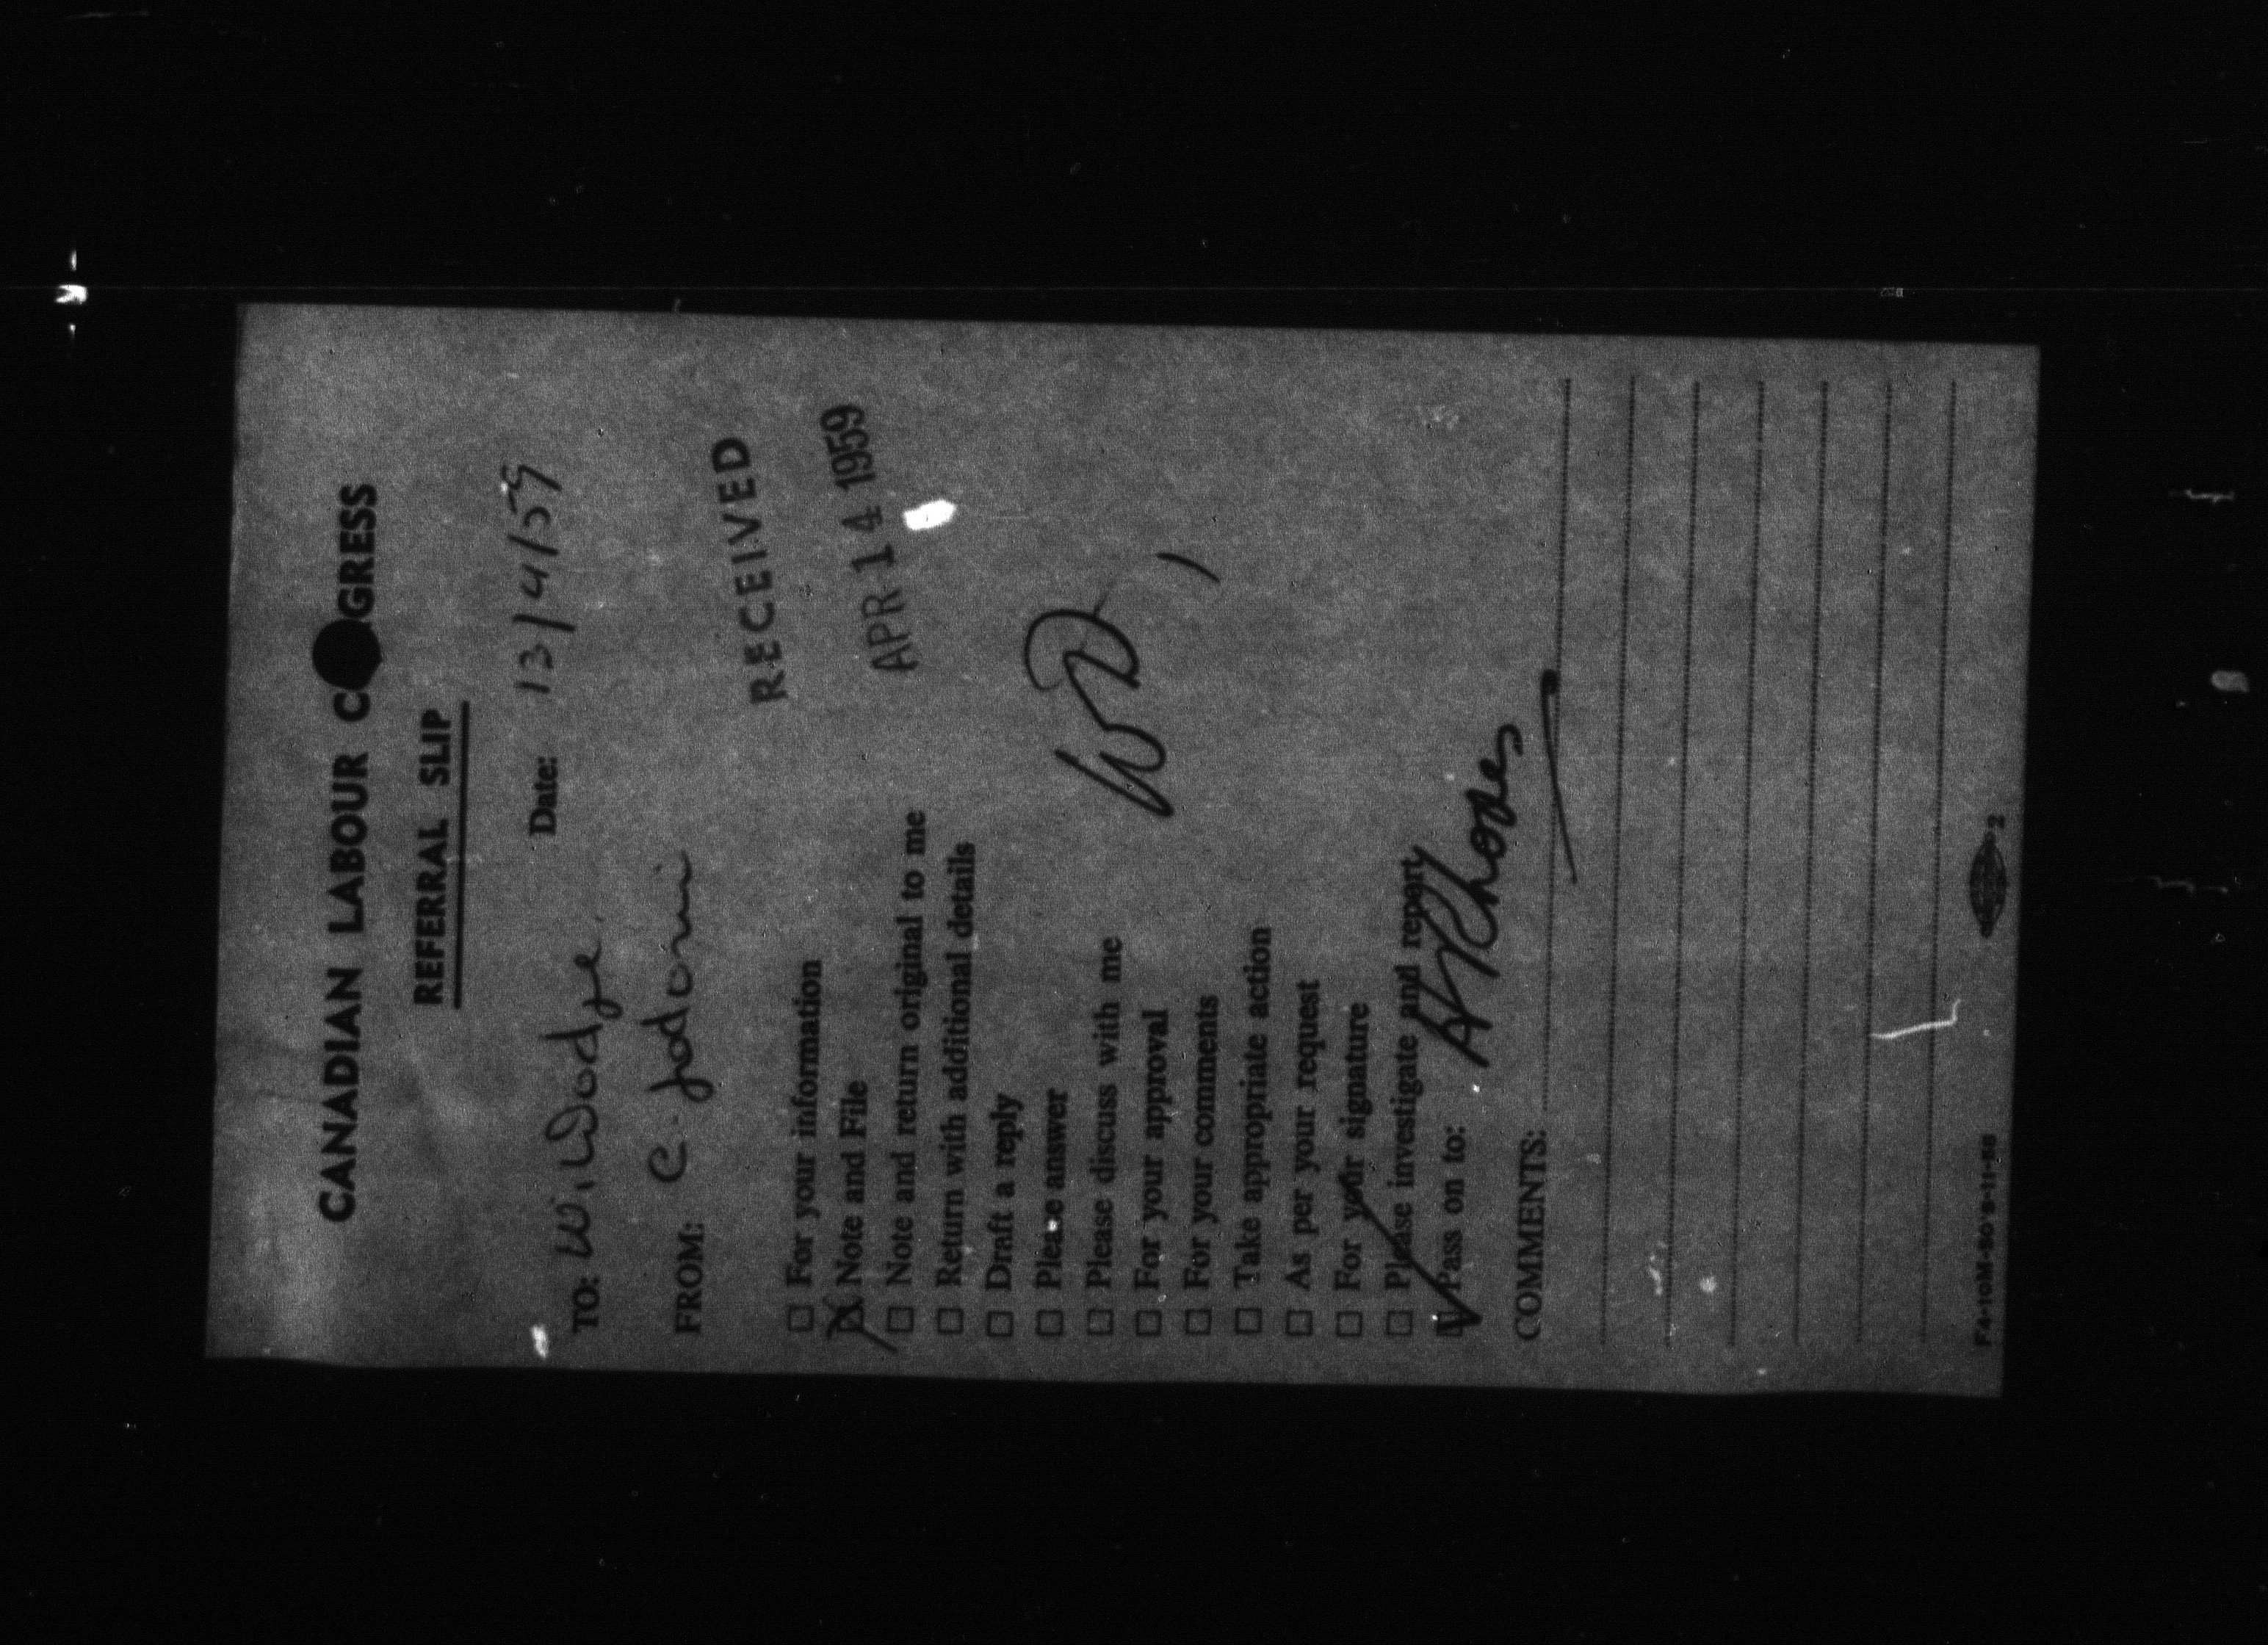 CANADIAN LABOUR C GRESS
REFERRAL SLIP
Date: 13/4/59
TO: W. Dodge
FROM: C. Jodoin
RECEIVED
APR 14 1959
☐ For your information
☒ Note and File
☐ Note and return original to me
☐ Return with additional details
☐ Draft a reply
☐ Please answer
☐ Please discuss with me
☐ For your approval
☐ For your comments
☐ Take appropriate action
☐ As per your request
☐ For your signature
☐ Please investigate and report
☑ Pass on to: A Rhodes
WD
COMMENTS:
2